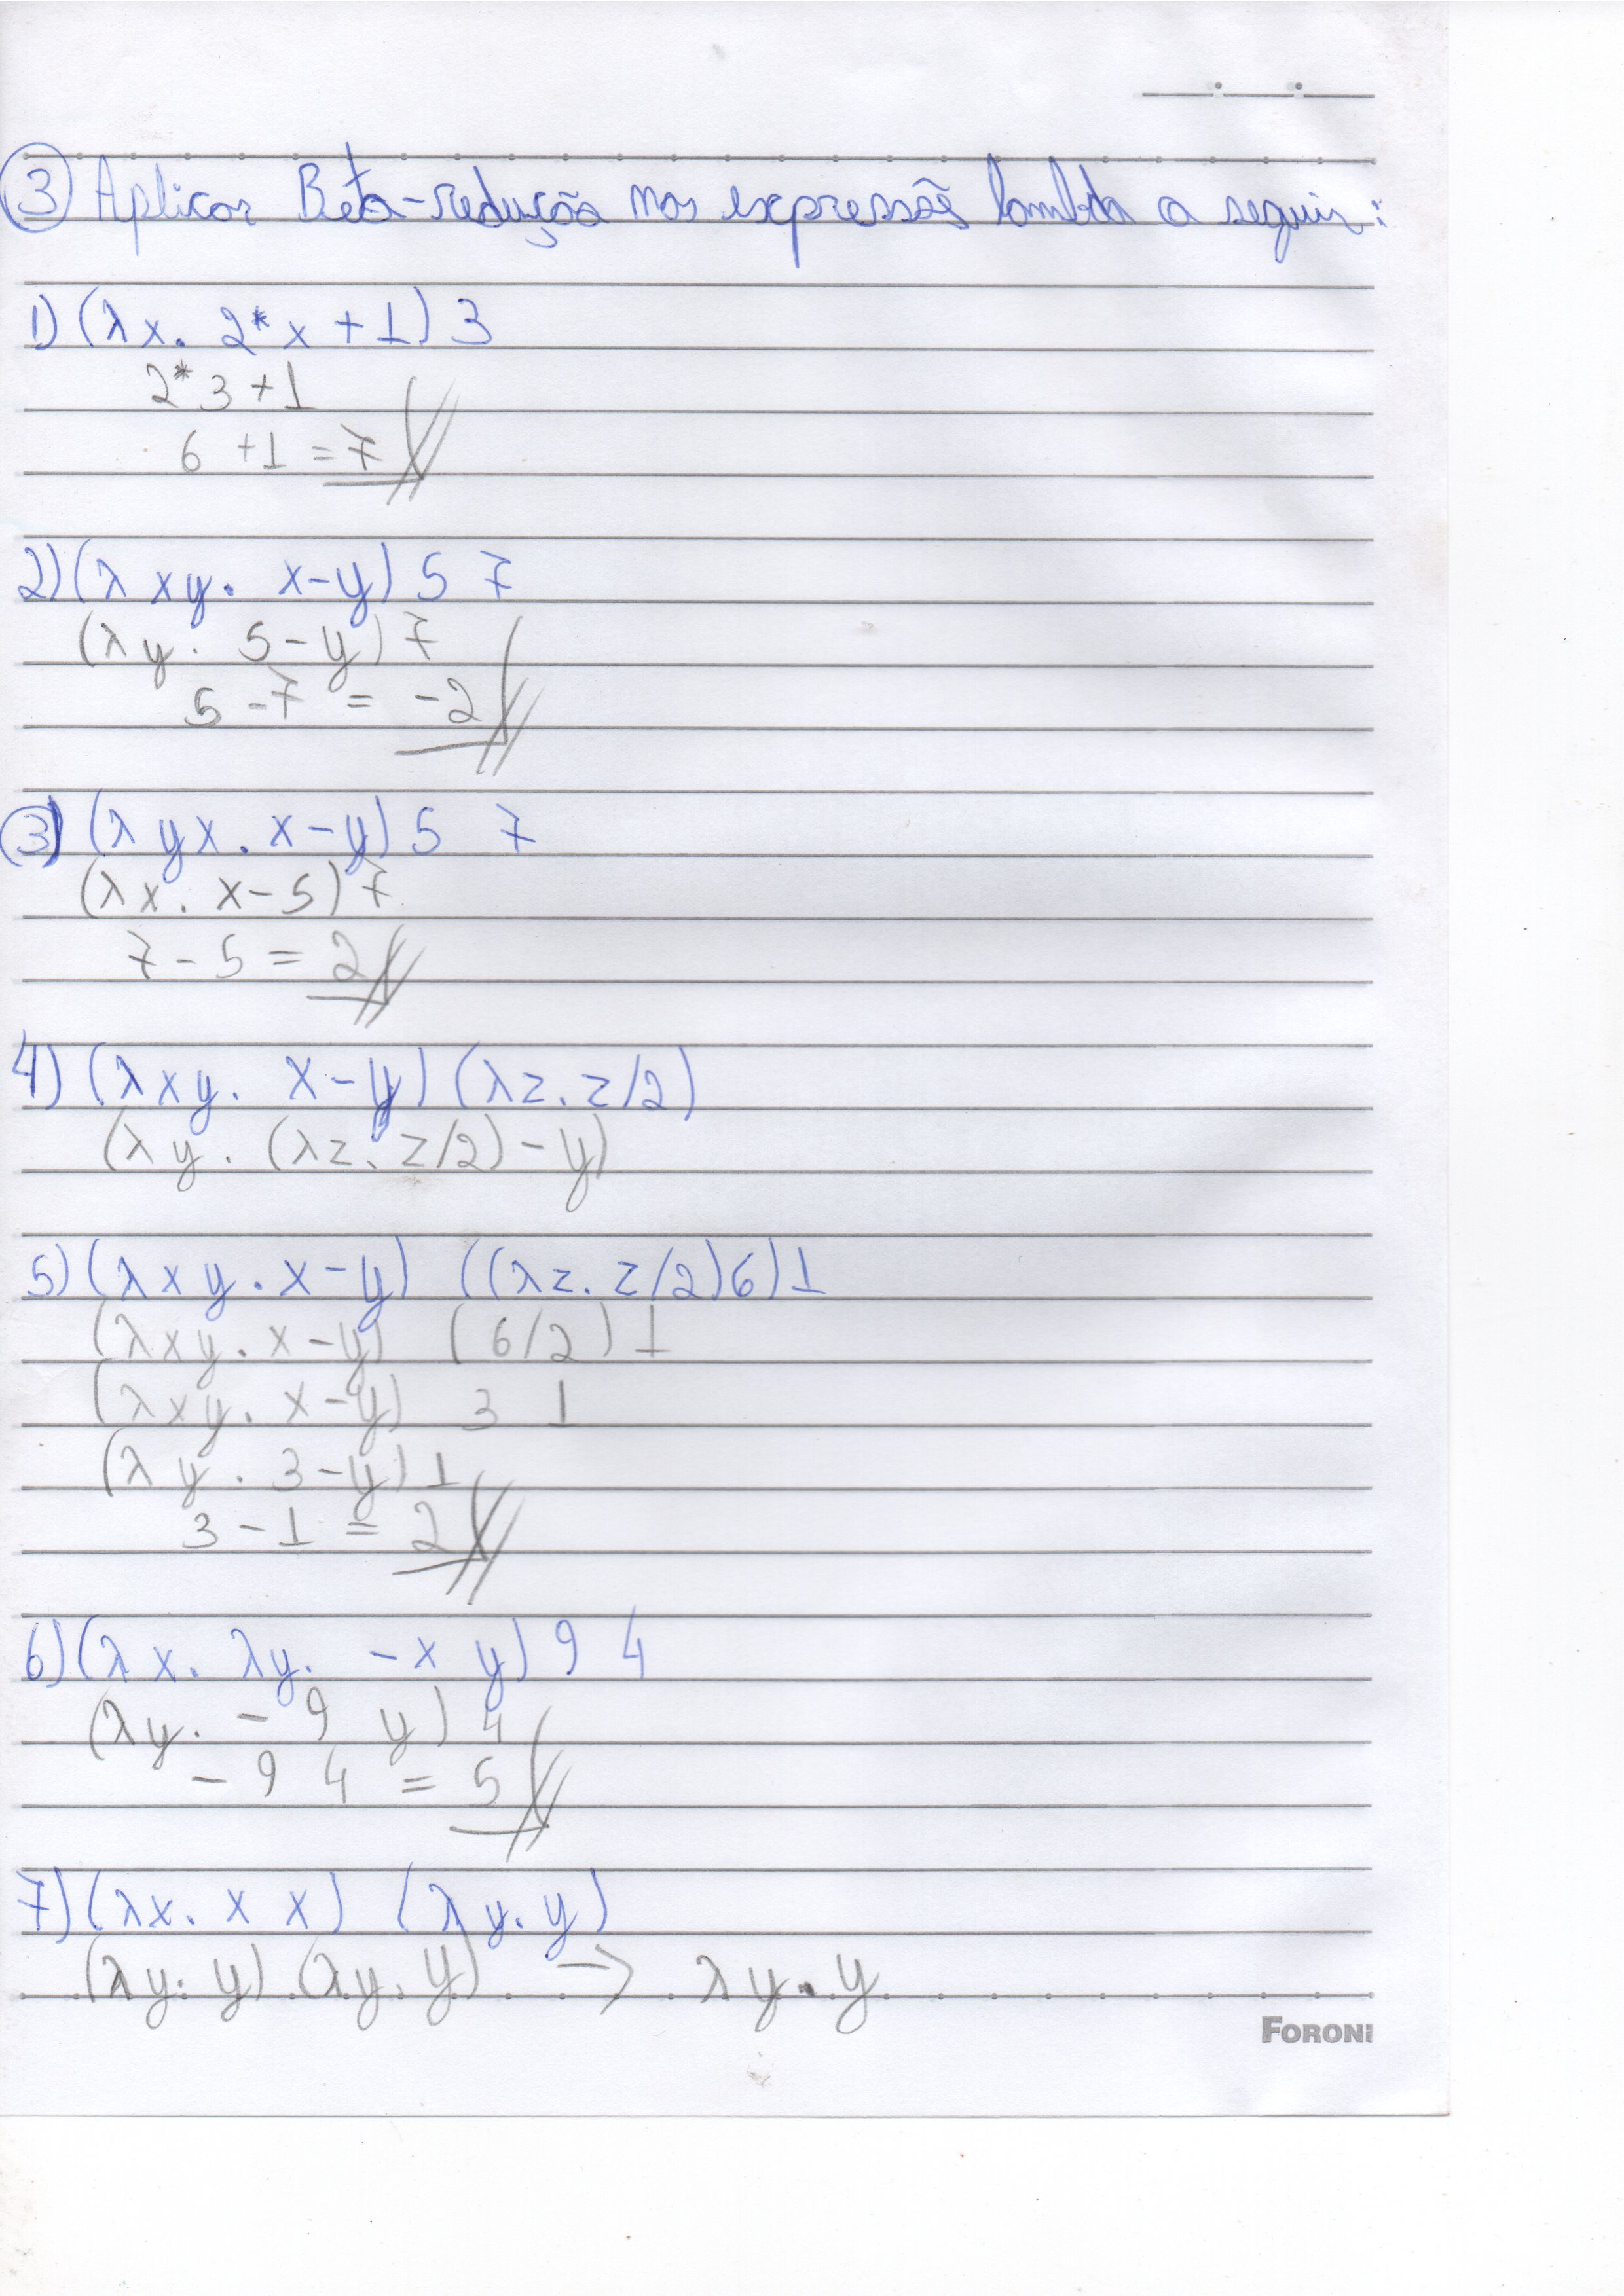 ③ Aplicar Beta-redução nas expressões lambda a seguir:
1) (λx. 2*x+1) 3
2*3+1
6 +1 = 7
2) (λxy. x-y) 5 7
(λy. 5-y) 7
5-7 = -2
3) (λyx. x-y) 5 7
(λx. x-5) 7
7-5 = 2
4) (λxy. x-y) (λz.z/2)
(λy. (λz. z/2) - y)
5) (λxy.x-y) ((λz.z/2)6)1
(λxy.x-y) (6/2) 1
(λxy.x-y) 3 1
(λy.3-y) 1
3-1 = 2
6) (λx. λy. -x y) 9 4
(λy. - 9 y) 4
- 9 4 = 5
7) (λx. x x) (λy.y)
(λy.y) (λy.y) -> λy.y
FORONI